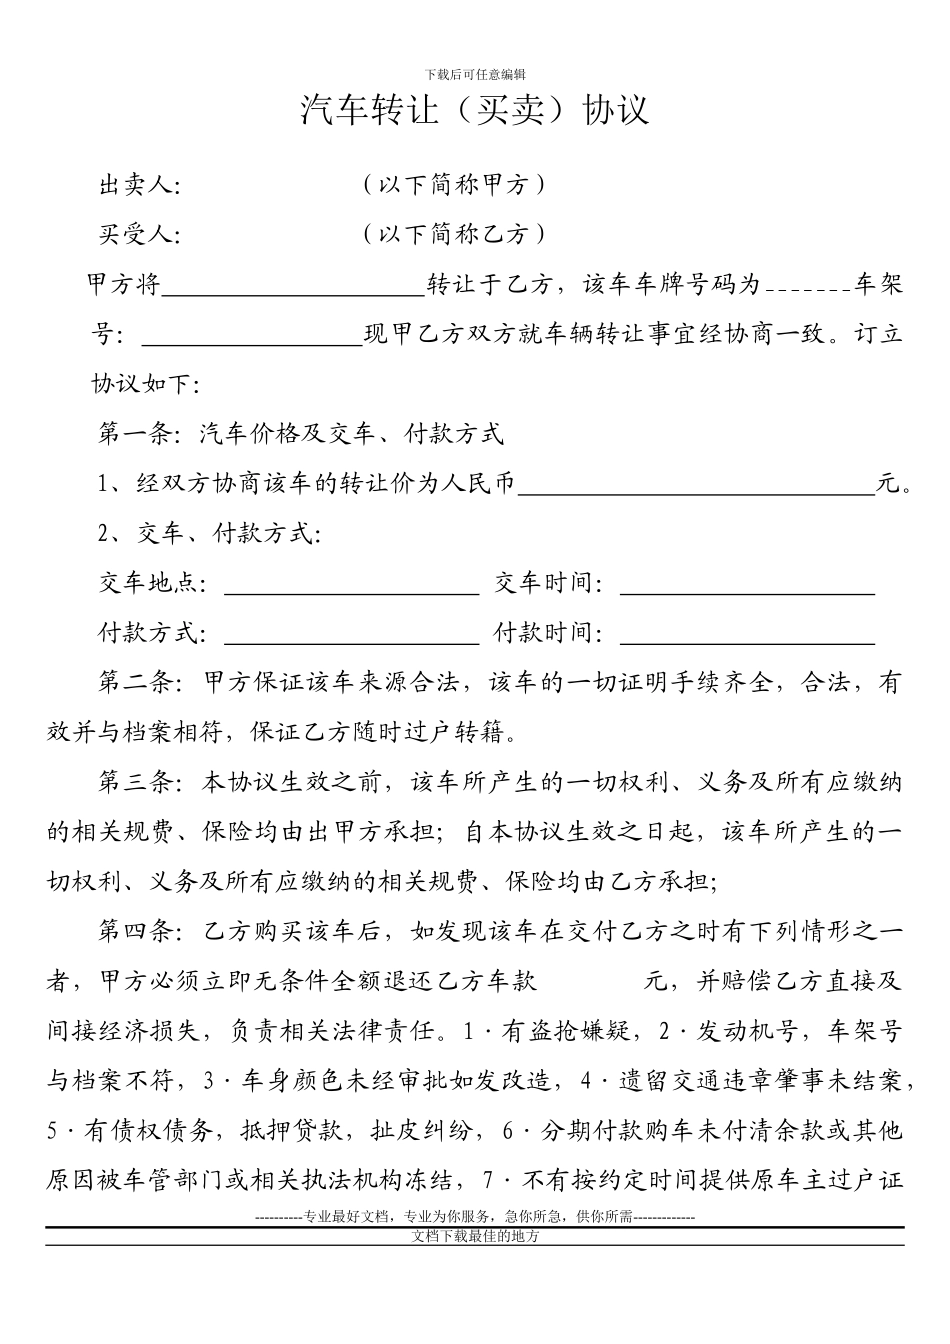 下载后可任意编辑
汽车转让（买卖）协议
出卖人：（以下简称甲方）
买受人：（以下简称乙方）
甲方将____________________转让于乙方，该车车牌号码为_______车架
号：_________________现甲乙方双方就车辆转让事宜经协商一致。订立
协议如下：
第一条：汽车价格及交车、付款方式
1、经双方协商该车的转让价为人民币____________________________元。
2、交车、付款方式：
交车地点：____________________ 交车时间：____________________
付款方式：____________________ 付款时间：____________________
第二条：甲方保证该车来源合法，该车的一切证明手续齐全，合法，有
效并与档案相符，保证乙方随时过户转籍。
第三条：本协议生效之前，该车所产生的一切权利、义务及所有应缴纳
的相关规费、保险均由出甲方承担；自本协议生效之日起，该车所产生的一
切权利、义务及所有应缴纳的相关规费、保险均由乙方承担；
第四条：乙方购买该车后，如发现该车在交付乙方之时有下列情形之一
者，甲方必须立即无条件全额退还乙方车款 元，并赔偿乙方直接及
间接经济损失，负责相关法律责任。1·有盗抢嫌疑，2·发动机号，车架号
与档案不符，3·车身颜色未经审批如发改造，4·遗留交通违章肇事未结案，
5·有债权债务，抵押贷款，扯皮纠纷，6·分期付款购车未付清余款或其他
原因被车管部门或相关执法机构冻结，7·不有按约定时间提供原车主过户证
----------专业最好文档，专业为你服务，急你所急，供你所需-------------
文档下载最佳的地方